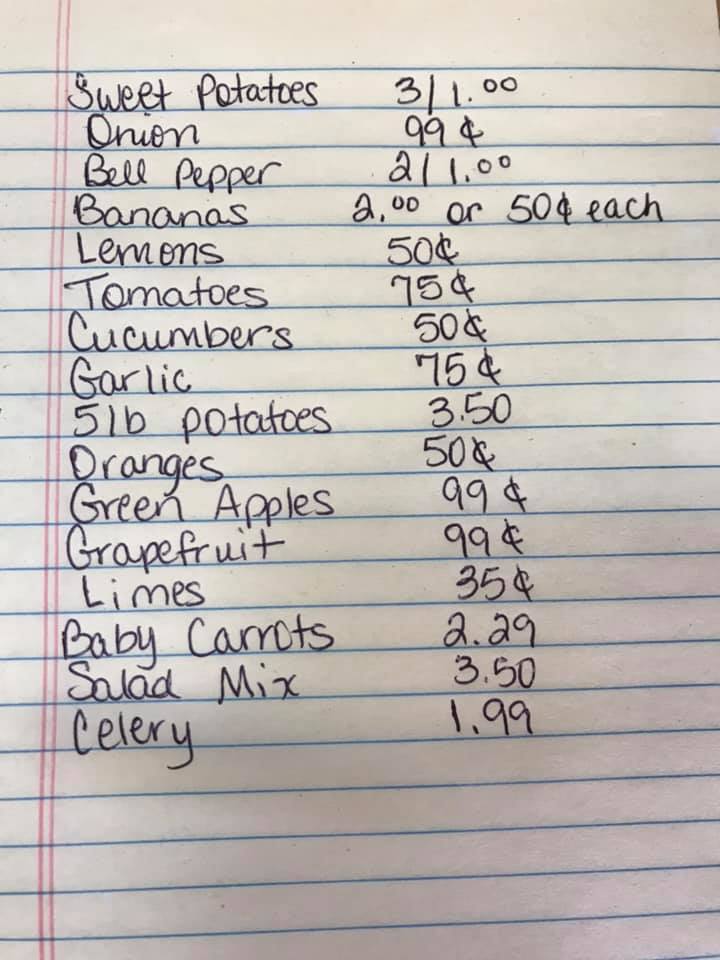 Sweet Potatoes 3/1.00
Onion 99¢
Bell Pepper 2/1.00
Bananas 2.00 or 50¢ each
Lemons 50¢
Tomatoes 75¢
Cucumbers 50¢
Garlic 75¢
5lb potatoes 3.50
Oranges 50¢
Green Apples 99¢
Grapefruit 99¢
Limes 35¢
Baby Carrots 2.29
Salad Mix 3.50
Celery 1.99